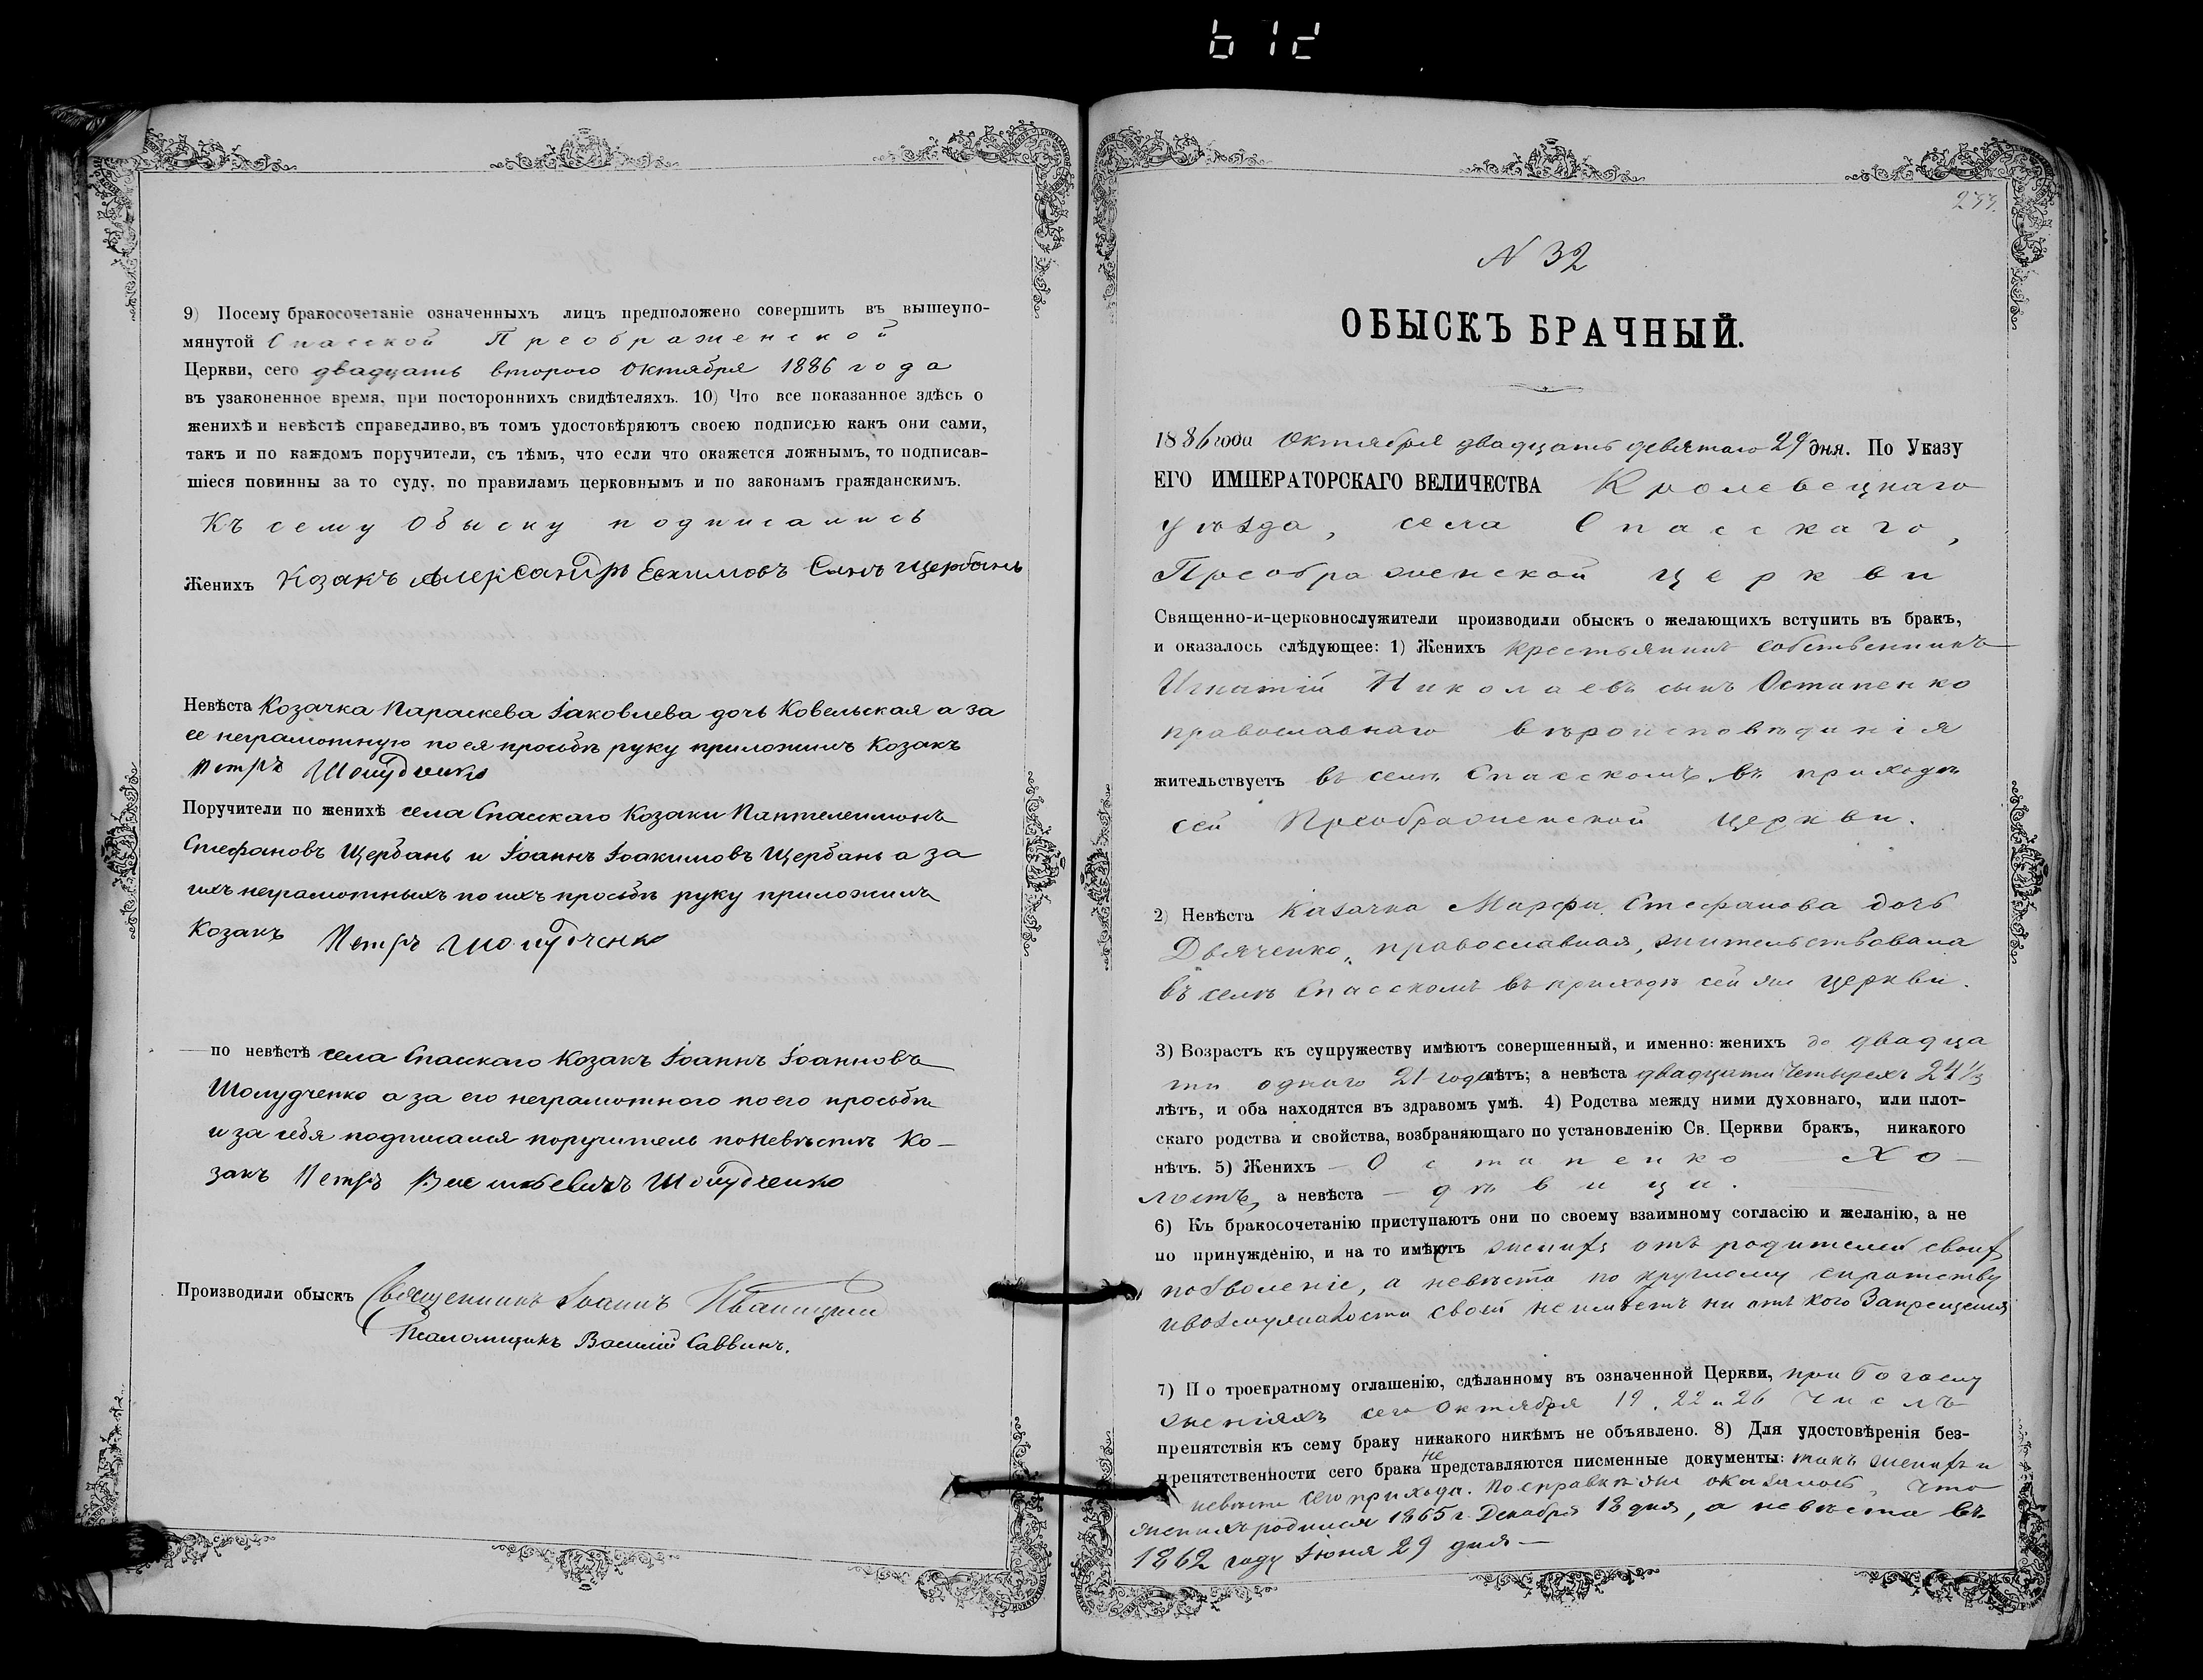 9) Посему бракосочетаніе означенныхъ лицъ предположено совершить въ вышеупо-
мянутой Спасской Преображенской
Церкви, сего двадцать второго Октября 1886 года
въ узаконенное время, при постороннихъ свидѣтеляхъ. 10) Что все показанное здѣсь о
женихѣ и невѣстѣ справедливо, въ томъ удостовѣряютъ своею подписью какъ они сами,
такъ и по каждомъ поручители, съ тѣмъ, что если что окажется ложнымъ, то подписав-
шіеся повинны за то суду, по правиламъ церковнымъ и по законамъ гражданскимъ.
Къ сему Обыску подписались
Женихъ Козакъ Александръ Екимовъ Сынъ Щербань
Невѣста Козачка Параскева Іаковлева дочь Ковельская а за
ее неграмотную по ея просьбѣ руку приложилъ Козакъ
Петръ Шолудченко
Поручители по женихѣ села Спасскаго Козаки Пантелеимонъ
Стефановъ Щербань и Іоаннъ Іоакимовъ Щербань а за
ихъ неграмотныхъ по ихъ просьбѣ руку приложилъ
Козакъ Петръ Шолудченко
по невѣстѣ села Спасскаго Козакъ Іоаннъ Іоанновъ
Шолудченко а за его неграмотного по его просьбѣ
и за себя подписался поручитель по невѣстѣ Ко-
закъ Петръ Васильевичъ Шолудченко
Производили обыскъ Священникъ Іоаннъ
Псаломщикъ Василій Саввинъ.
N 32
ОБЫСКЪ БРАЧНЫЙ.
1886 года Октября двадцать девятаго 29 дня. По Указу
ЕГО ИМПЕРАТОРСКАГО ВЕЛИЧЕСТВА Кролевецкаго
уѣзда, села Спасскаго,
Преображенской церкви
Священно-и-церковнослужители производили обыскъ о желающихъ вступить въ бракъ,
и оказалось слѣдующее: 1) Женихъ крестьянинъ собственникъ
Игнатій Николаевъ сынъ Остапенко
православнаго вѣроисповѣданія
жительствуетъ въ селѣ Спасскомъ въ приходѣ
сей Преображенской церкви.
2) Невѣста Казачка Марфа Стефанова дочь
Дьяченко, православная, жительствовала
въ селѣ Спасскомъ въ приходѣ сей же церкви.
3) Возрастъ къ супружеству имѣютъ совершенный, и именно: женихъ до двадца
ти одного 21 года лѣтъ; а невѣста двадцати четырехъ 24 1/3
лѣтъ, и оба находятся въ здравомъ умѣ. 4) Родства между ними духовнаго, или плот-
скаго родства и свойства, возбраняющаго по установленію Св. Церкви бракъ, никакого
нѣтъ. 5) Женихъ – Остапенко – Хо-
лостъ, а невѣста – дѣвица.
6) Къ бракосочетанію приступаютъ они по своему взаимному согласію и желанію, а не
по принужденію, и на то имѣютъ женихъ отъ родителей своихъ
позволеніе, а невѣста по круглому сиротству
и возмужалости своей не имѣетъ ни отъ кого Запрещенія
7) По троекратному оглашенію, сдѣланному въ означенной Церкви, при Богослу
женіяхъ сего Октября 19, 22 и 26 числъ
препятствія къ сему браку никакого никѣмъ не объявлено. 8) Для удостовѣренія без-
препятственности сего брака не представляются писменные документы: такъ женихъ и
невѣста сего прихода. По справкѣ же оказалось, что
женихъ родился 1865 г. Декабря 18 дня, а невѣста въ
1862 году Іюня 29 дня –